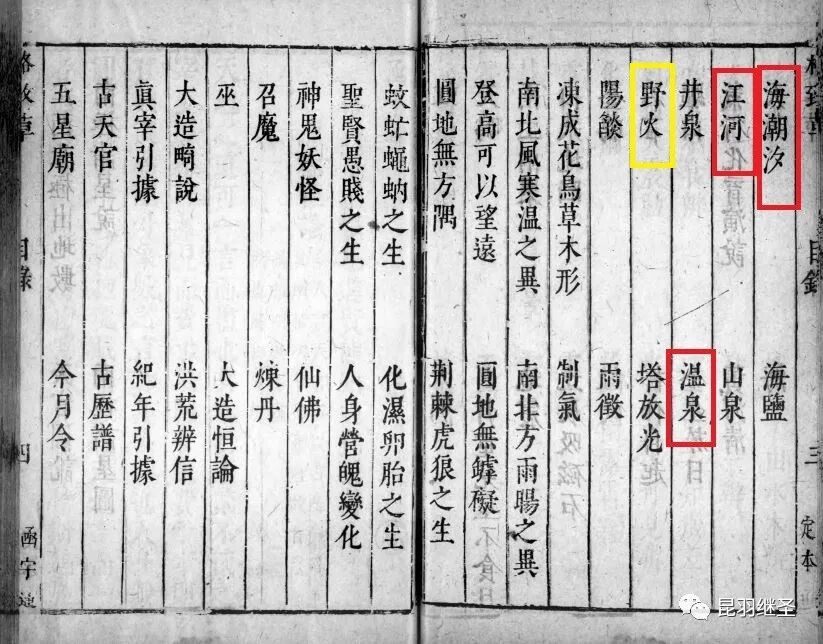 格致草 目錄 三 定本
海潮汐 海鹽
江河 山泉
井泉 温泉
野火 塔放光
陽燄 雨徵
凍成花鳥草木形 制氣
南北風寒温之異 南北方雨暘之異
登高可以望遠 圓地無罅礙
圓地無方隅 荆棘虎狼之生
蚊虻蠅蚋之生 化濕卵胎之生
聖賢愚賤之生 人身營魄變化
神鬼妖怪 仙佛
召魔 煉丹
巫 大造恒論
大造畸說 洪荒辨信
眞宰引據 紀年引據
古天官 古歷譜
五星廟 今月令
格致草 目錄 四 函宇通
昆羽继圣